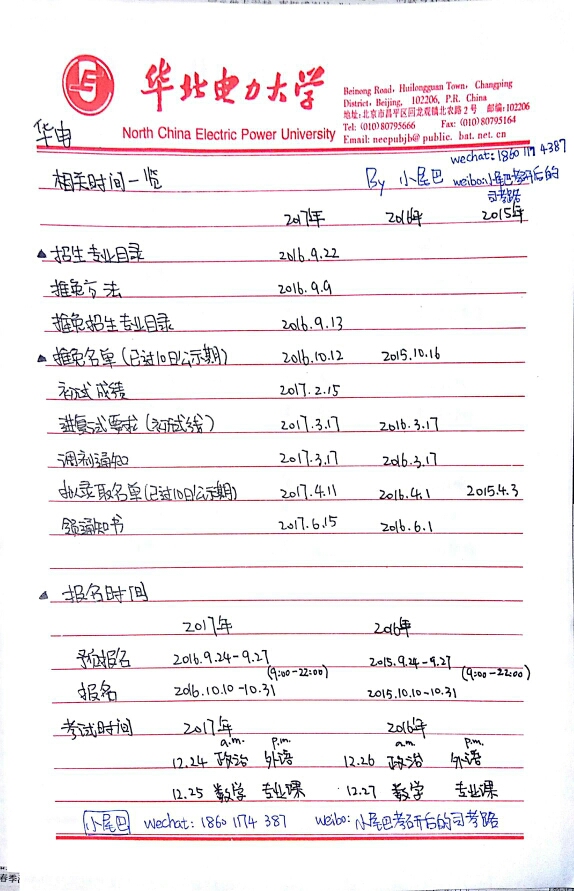 华北电力大学
North China Electric Power University
Beinong Road, Huilongguan Town, Changping
District, Beijing, 102206, P.R. China
地址:北京市昌平区回龙观镇北农路2号 邮编:102206
Tel: (010)80795666 Fax: (010)80795164
Email: neepubjb@public. bat. net. cn
华电
wechat: 1860 1174 387
相关时间一览 By 小尾巴 weibo:小尾巴考研后的
司考路
2017年 2016年 2015年
▲招生专业目录 2016.9.22
推免方法 2016.9.9
推免招生专业目录 2016.9.13
▲推免名单(已过10日公示期) 2016.10.12 2015.10.16
初试成绩 2017.2.15
进复试要求(初试线) 2017.3.17 2016.3.17
调剂通知 2017.3.17 2016.3.17
拟录取名单(已过10日公示期) 2017.4.11 2016.4.1 2015.4.3
领通知书 2017.6.15 2016.6.1
▲ 报名时间
2017年 2016年
预报名 2016.9.24-9.27 2015.9.24-9.27
(9:00-22:00) (9:00-22:00)
报名 2016.10.10-10.31 2015.10.10-10.31
考试时间 2017年 2016年
a.m. p.m. a.m. p.m.
12.24 政治 外语 12.26 政治 外语
12.25 数学 专业课 12.27 数学 专业课
小尾巴 wechat: 1860 1174 387 weibo: 小尾巴考研后的司考路